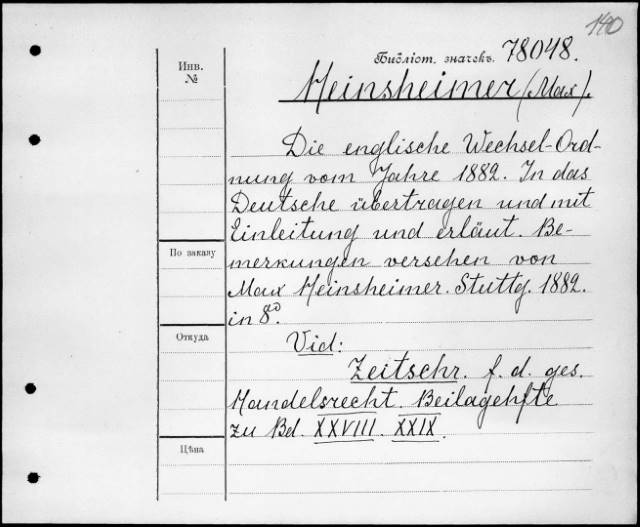 140
Библіот. значекъ. 78048.
Инв.
№
Heinsheimer (Max).
Die englische Wechsel-Ord-
nung vom Jahre 1882. In das
Deutsche übertragen und mit
Einleitung und erläut. Be-
merkungen versehen von
Max Heinsheimer. Stuttg. 1882.
in 8º.
По заказу
Откуда
Цѣна
Vid:
Zeitschr. f. d. ges.
Handelsrecht. Beilagehfte
zu Bd. XXVIII. XXIX.